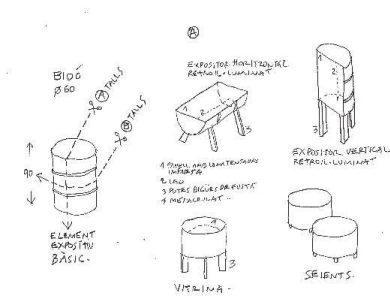 A
BIDÓ
Ø60
A TALLS
B TALLS
90
ELEMENT
EXPOSITIU
BÀSIC.
EXPOSITOR HORITZONTAL
RETROIL·LUMINAT
1
2
3
1 PANELL AMB LONA TENSADA
IMPRESA
2 LED
3 POTES BIGUES DE FUSTA
4 METACRILAT
1
2
3
EXPOSITOR VERTICAL
RETROIL·LUMINAT
4
3
VITRINA.
SEIENTS.